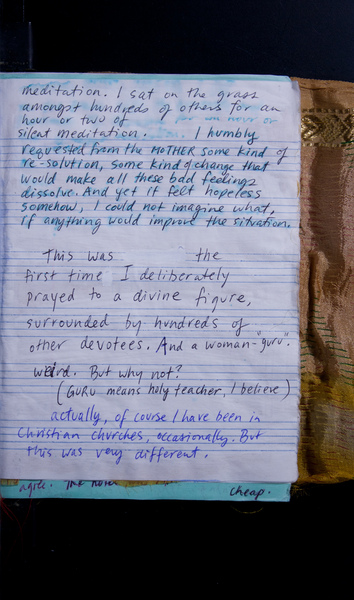 meditation. I sat on the grass
amongst hundreds of others for an
hour or two of
silent meditation. I humbly
requested from the MOTHER some kind of
re-solution, some kind of change that
would make all these bad feelings
dissolve. And yet it felt hopeless
somehow, I could not imagine what,
if anything would improve the situation.
This was the
first time I deliberately
prayed to a divine figure,
surrounded by hundreds of
other devotees. And a woman-"guru".
weird. But why not?
(GURU means holy teacher, I believe)
actually, of course I have been in
Christian churches, occasionally. But
this was very different.
agile. The
cheap.